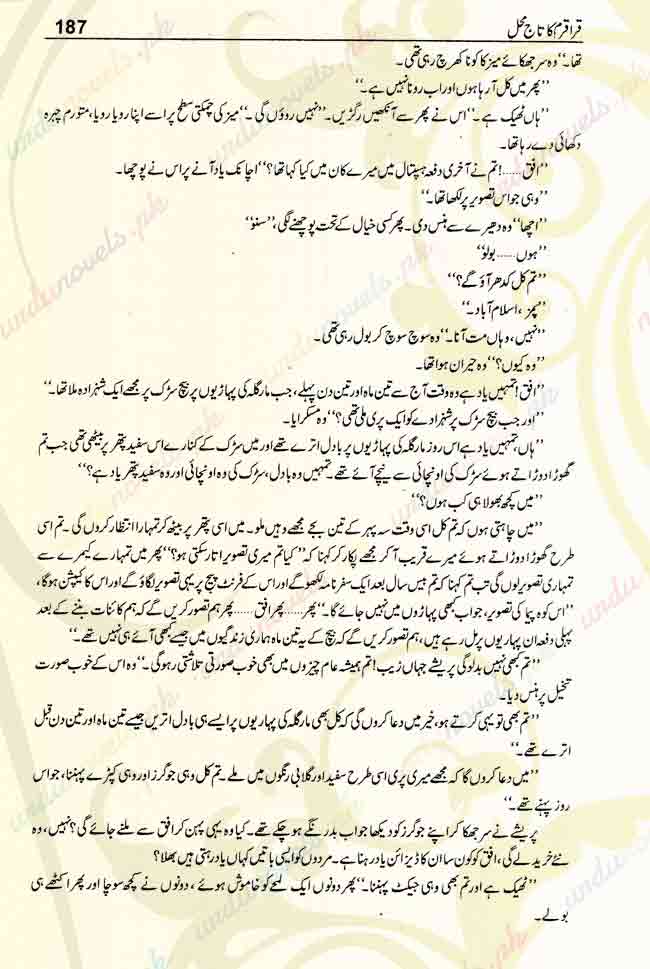 قراقرم کا تاج محل 187
تھا۔‘‘ وہ سر جھکائے میز کا کونا کھرچ رہی تھی۔
’’پھر میں کل آ رہا ہوں اور اب رونا نہیں ہے۔‘‘
’’ہاں ٹھیک ہے۔‘‘ اس نے پھر سے آنکھیں رگڑیں۔ ’’نہیں روؤں گی۔‘‘ میز کی چمکتی سطح پر اسے اپنا رویا رویا، متورم چہرہ
دکھائی دے رہا تھا۔
’’افق......! تم نے آخری دفعہ ہسپتال میں میرے کان میں کیا کہا تھا؟‘‘ اچانک یاد آنے پر اس نے پوچھا۔
’’وہی جو اس تصویر پر لکھا تھا۔‘‘
’’اچھا‘‘ وہ دھیرے سے ہنس دی۔ پھر کسی خیال کے تحت پوچھنے لگی، ’’سنو‘‘
’’ہوں...... بولو‘‘
’’تم کل کدھر آؤ گے؟‘‘
’’پمز، اسلام آباد۔‘‘
’’نہیں، وہاں مت آنا۔‘‘ وہ سوچ سوچ کر بول رہی تھی۔
’’وہ کیوں؟‘‘ وہ حیران ہوا تھا۔
’’افق! تمہیں یاد ہے وہ وقت آج سے تین ماہ اور تین دن پہلے، جب مارگلہ کی پہاڑیوں پر بیچ سڑک پر مجھے ایک شہزادہ ملا تھا۔‘‘
’’اور جب بیچ سڑک پر شہزادے کو ایک پری ملی تھی؟‘‘ وہ مسکرایا۔
’’ہاں، تمہیں یاد ہے اس روز مارگلہ کی پہاڑیوں پر بادل اترے تھے اور میں سڑک کے کنارے اس سفید پتھر پر بیٹھی تھی جب تم
گھوڑا دوڑاتے ہوئے سڑک کی اونچائی سے نیچے آئے تھے۔ تمہیں وہ بادل، سڑک کی وہ اونچائی اور وہ سفید پتھر یاد ہے؟‘‘
’’میں کچھ بھولا ہی کب ہوں؟‘‘
’’میں چاہتی ہوں کہ تم کل اسی وقت سہ پہر کے تین بجے مجھے وہیں ملو۔ میں اسی پتھر پر بیٹھ کر تمہارا انتظار کروں گی۔ تم اسی
طرح گھوڑا دوڑاتے ہوئے میرے قریب آ کر مجھے پکار کر کہنا کہ ’’کیا تم میری تصویر اتار سکتی ہو؟‘‘ پھر میں تمہارے کیمرے سے
تمہاری تصویر لوں گی تب تم کہنا کہ تم بیس سال بعد ایک سفرنامہ لکھو گے اور اس کے فرنٹ پیج پر یہی تصویر لگاؤ گے اور اس کا کیپشن ہوگا،
’’اس کوہ پیما کی تصویر، جو اب کبھی پہاڑوں میں نہیں جائے گا۔‘‘ پھر...... پھر افق...... پھر ہم تصور کریں گے کہ ہم کائنات بننے کے بعد
پہلی دفعہ ان پہاڑیوں پر مل رہے ہیں، ہم تصور کریں گے کہ بیچ کے یہ تین ماہ ہماری زندگیوں میں جیسے کبھی آئے ہی نہیں تھے۔‘‘
’’تم کبھی نہیں بدلو گی پریشے جہاں زیب! تم ہمیشہ عام چیزوں میں بھی خوب صورتی تلاشتی رہو گی۔‘‘ وہ اس کے خوب صورت
تخیل پر ہنس دیا۔
’’تم بھی تو یہی کرتے ہو، خیر میں دعا کروں گی کہ کل بھی مارگلہ کی پہاڑیوں پر ایسے ہی بادل اتریں جیسے تین ماہ اور تین دن قبل
اترے تھے۔‘‘
’’میں دعا کروں گا کہ مجھے میری پری اسی طرح سفید اور گلابی رنگوں میں ملے۔ تم کل وہی جوگرز اور وہی کپڑے پہننا، جو اس
روز پہنے تھے۔‘‘
پریشے نے سر جھکا کر اپنے جوگرز کو دیکھا جو اب بدرنگے ہو چکے تھے۔ کیا وہ یہی پہن کر افق سے ملنے جائے گی؟ نہیں، وہ
نئے خریدے گی، افق کو کون سا ان کا ڈیزائن یاد رہنا ہے۔ مردوں کو ایسی باتیں کہاں یاد رہتی ہیں بھلا؟
’’ٹھیک ہے اور تم بھی وہی جیکٹ پہننا۔‘‘ پھر دونوں ایک لمحے کو خاموش ہوئے، دونوں نے کچھ سوچا اور پھر اکٹھے ہی
بولے۔
urdunovels.pk